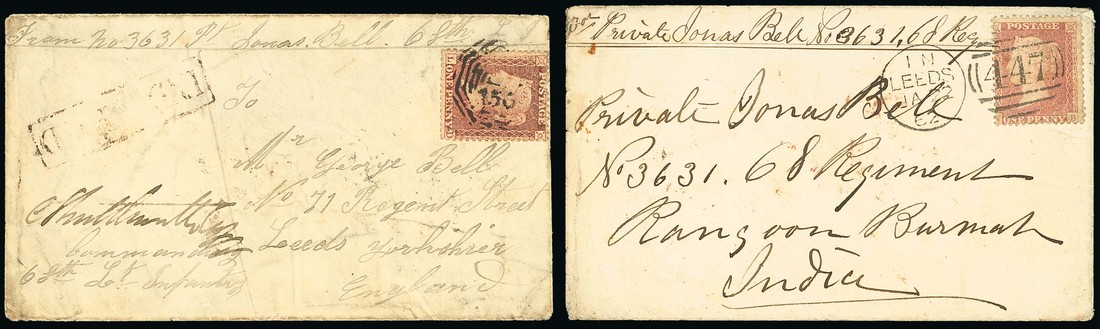 From No 3631 Pt Jonas Bell. 68th
POSTAGE
ONE PENNY
156
To
Mr George Bell
No 71 Regent Street
Leeds Yorkshier
England
Commanding
68th Lt Infantry
Private Jonas Bell No 3631, 68 Reg
POSTAGE
ONE PENNY
1 N
LEEDS
JA
62
447
Private Jonas Bell
No 3631. 68 Regiment
Rangoon Burmah
India